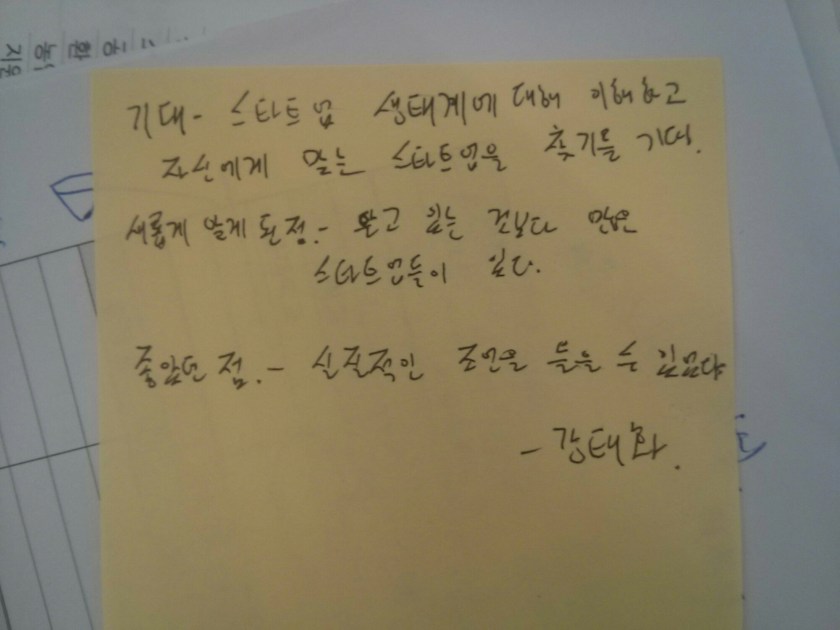 기대- 스타트업 생태계에 대해 이해하고
자신에게 맞는 스타트업을 찾기를 기대.
새롭게 알게 된 점.- 알고 있는 것보다 많은
스타트업들이 있다.
좋았던 점.- 실질적인 조언을 들을 수 있었다
- 강태화.